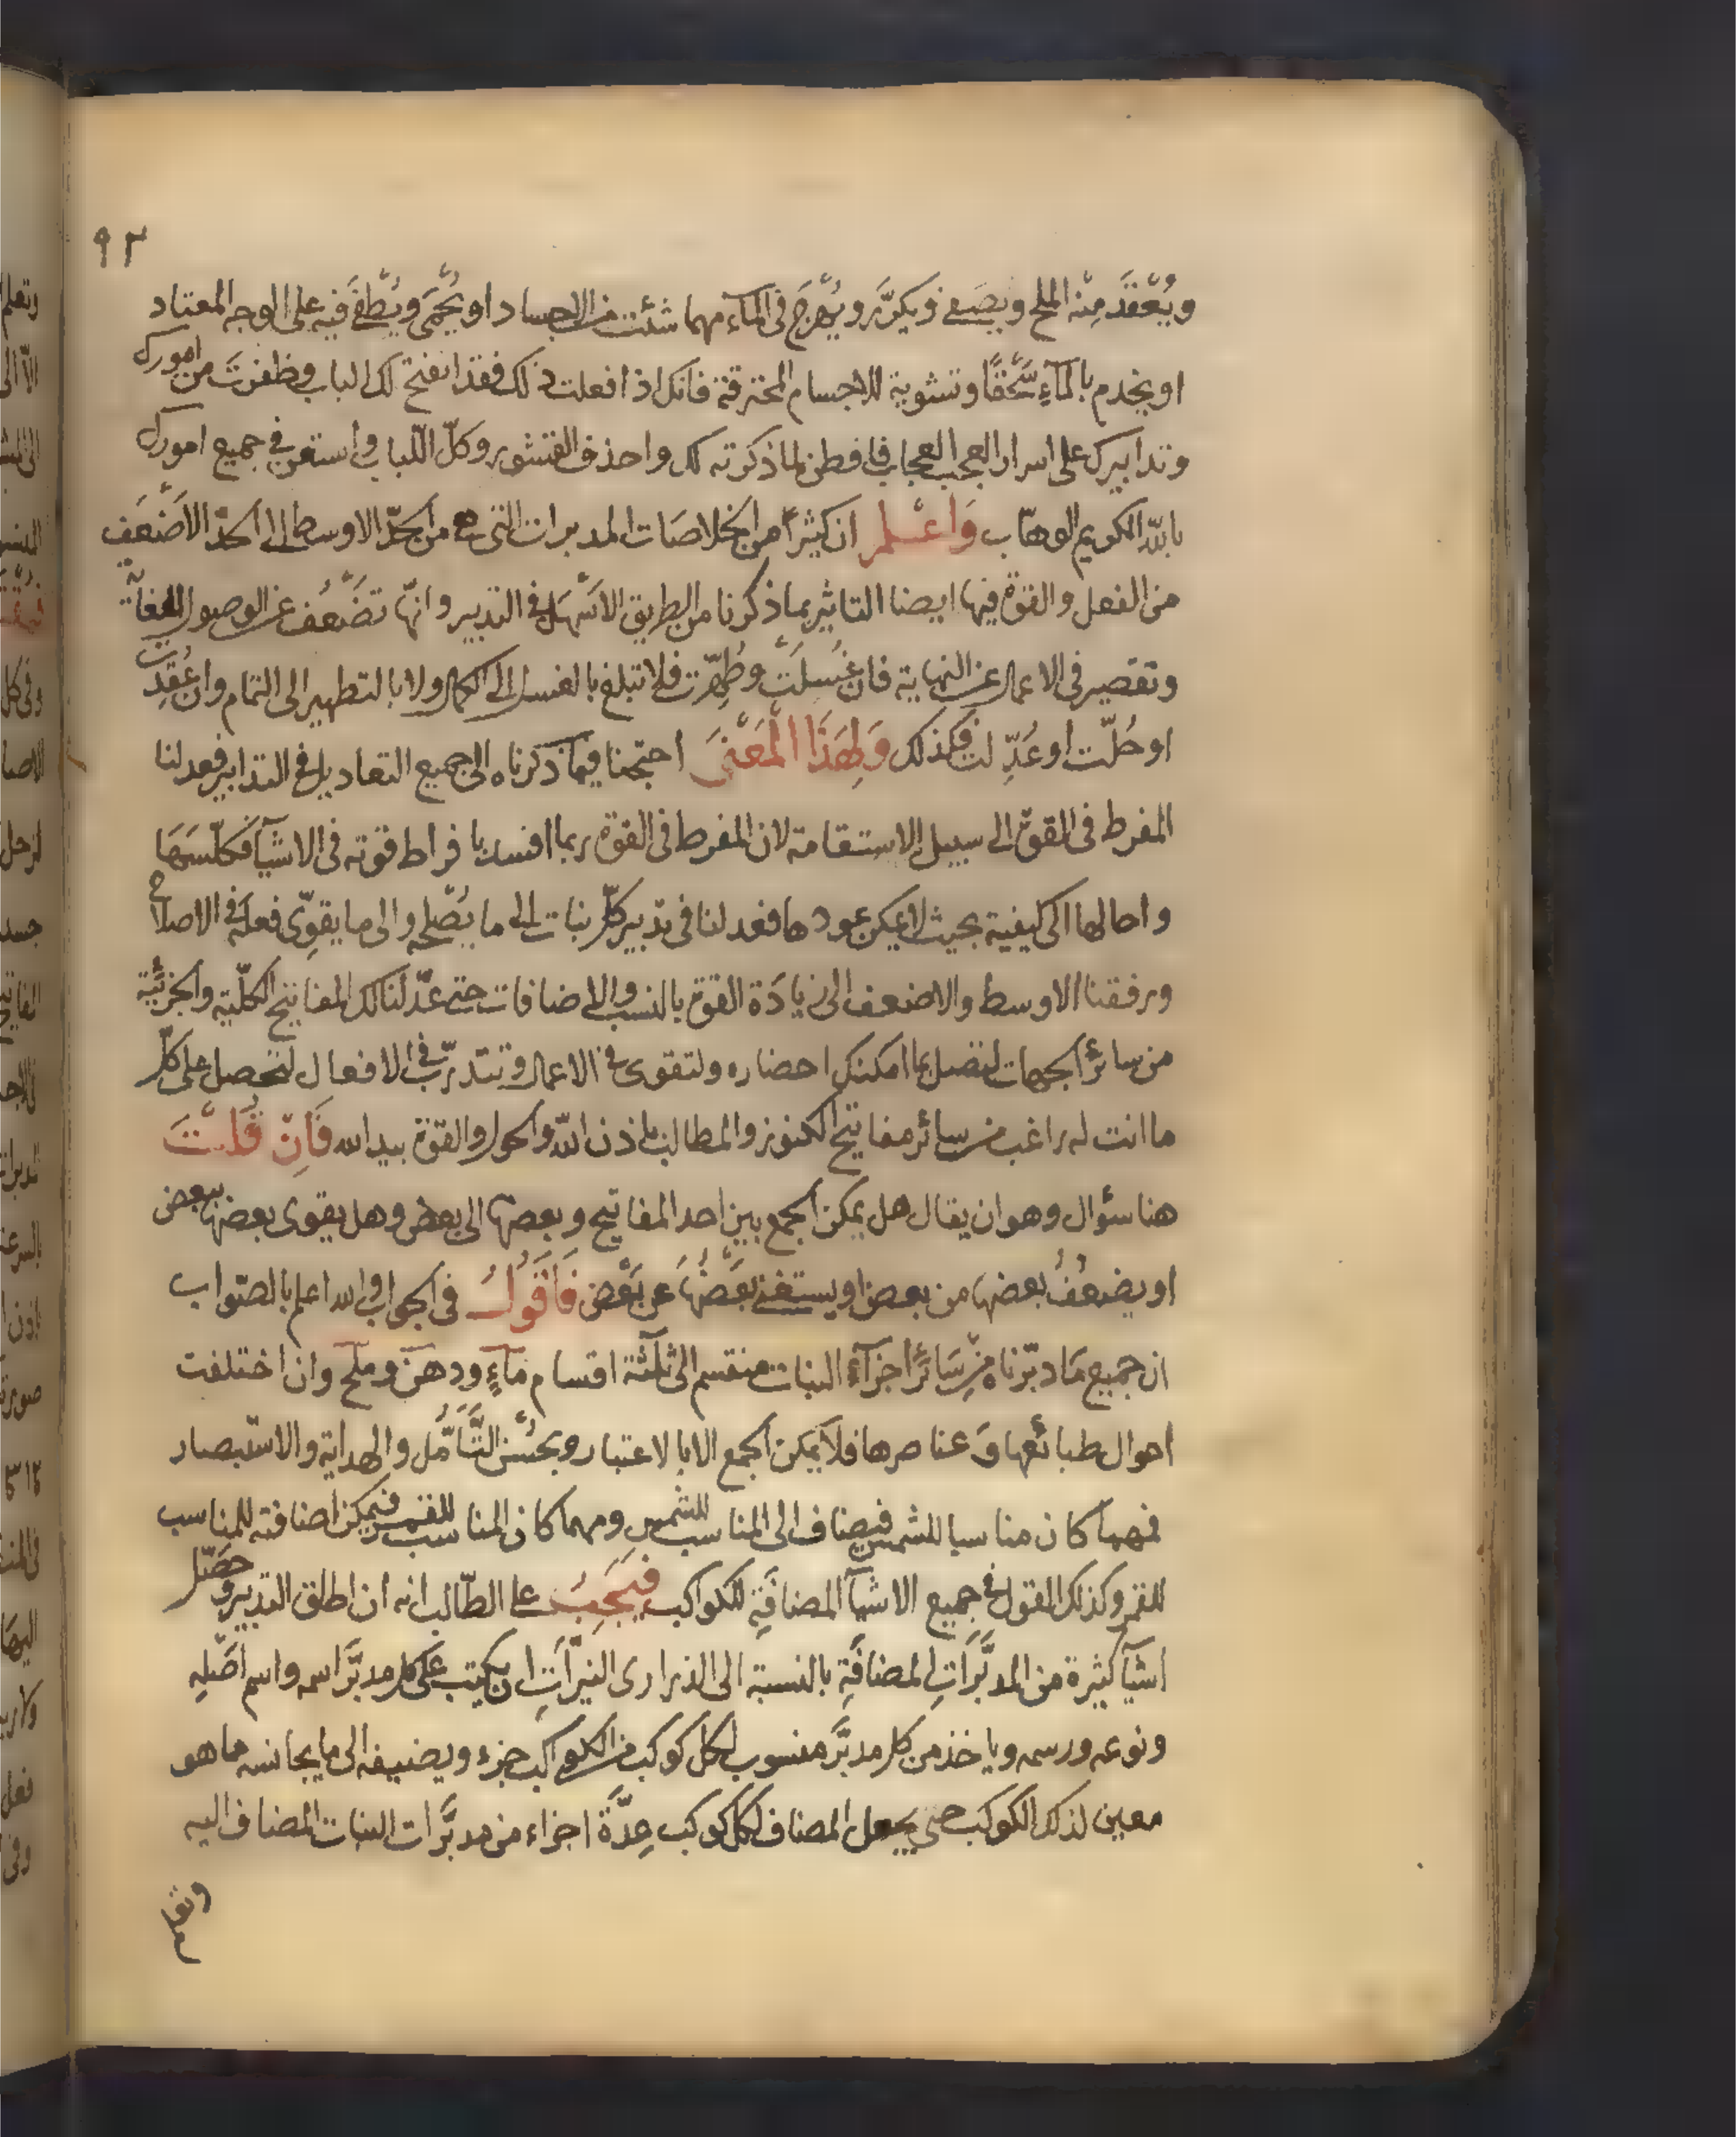 ٩٢
ويُعْقَدَ مِنْه الملح ويصَفى ويكرَّر ويُمْزج فى المآء مهما شئت من الاجساد او يُحْمَى ويُطْفَى فيه على الوجه المعتاد
او يخدم بالمآءِ سَحْقًا وتشوية للاجسام المحترقة فانك اذا فعلت ذلك فقد انفتح لك الباب وظفرت من امورك
وتدابيرك على اسرار العجب العجاب فافطن لما ذكرته لك واحذف القشور وكل اللّباب واستعن فى جميع امورك
بالله الكريم الوهّاب وَاعْلم ان كثيراً من الخلاصَات المدبرات التى هى من الحدّ الاوسط الى الحدّ الاضْعَف
من الفعل والقوة فيها ايضا التاثير بما ذكرنا من الطريق الاسْهَل فى التدبير وانّها تضْعُف عن الوصول للغاية
وتقصير فى الاعمال عن النهاية فان غُسلَتْ وطُهِّرت فلا تبلغ بالغسل الى الكمال ولا بالتطهير الى التمام وان عُقِدت
او حُلّت او عُدِّلت فكذلك وَلِهَذَا الْمَعْنىَ احتجنا فيما ذكرناه الى جميع التعاديل فى التدابير فعدلنا
المفرط فى القوة الى سبيل الاستقامة لان المفرط فى القوة ربما افسد بافراط قوته فى الاشيآ فكلّسَهَا
واحالها الى كيفية بحيث لا يمكن عودها فعدلنا فى تدبير كلّ نبات الى ما يُصْلحه والى ما يقوِّى فعلَه فى الاصلاح
ورفقنا الاوسط والاضعف الى زيادَة القوة بالنسب والاضافات حتى عدّلنا لك المفاتيح الكلّية والجزئيّة
من سائر الجهات لتصل بما امكنك احضاره ولتقوى فى الاعمال وتتدرّب فى الافعال لتحصل على كلّ
ما انت له راغب من سائر مفاتيح الكنوز والمطالب باذن الله والحول والقوة بيد الله فَاِنْ قُلْتَ
هنا سؤال وهو ان يقال هل يمكن الجمع بين احد المفاتيح وبعضها الى بعض وهل يقوى بعضها ببعض
او يضعُفُ بعضها من بعض او يستغنى بَعْضُهَا عن بَعْض فَاَقُولُ فى الجواب والله اعلم بالصّواب
ان جميع مَا دبّرناه مِنْ سَائر اجزآء النبات منقسم الى ثلٰثة اقسام مآءٍ ودهن وملح وان اختلفت
احوال طبائعها وَعناصرها فلا يمكن الجمع الا بالاعتبار وبحُسْن التّأمّل والهداية والاستبصار
فمهما كان مناسبا للشمس فيضاف الى المناسب للشمس ومهما كان المناسب للقمر فيمكن اضافته للمناسب
للقمر وكذلك القول فى جميع الاشيآ المضافَةِ للكواكب فيَجَبُ على الطّالب انه ان اطلق التدبير وحصّل
اشيآ كثيرة من المدبَّرَاتِ المضافَةِ بالنسبة الى الذرارى النيّرَاتِ ان يكتب على كل مدبَّر اسمه واسم اصْلِهِ
ونوعه ورسمه وياخذ من كل مدبَّر منسوب لكل كوكب من الكواكب جزء ويضيفه الى ما يجانسه مما هو
معين لذلك الكوكب حتى يجعل المضاف لكل كوكب عِدّةَ اجزاء من مدبَّرات النبات المضاف اليه